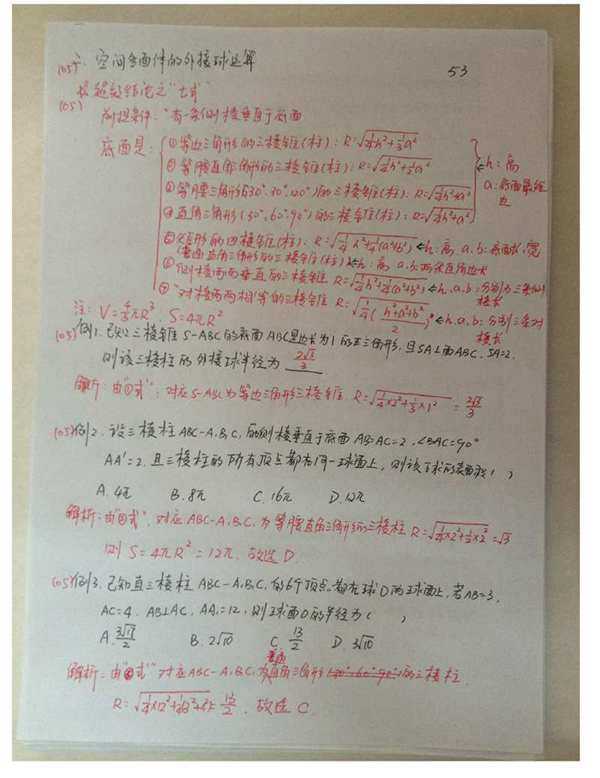 空间多面体的外接球运算
53
前提条件:"有一条侧棱垂直于底面
底面是:
①等边三角形的三棱锥(柱):R=√(1/4h²+1/3a²)
②等腰直角三角形的三棱锥(柱):R=√(1/4h²+1/2a²)
③等腰三角形(30°.30°.120°)的三棱锥(柱):R=√(1/4h²+a²)
④直角三角形(30°.60°.90°)的三棱锥(柱):R=√(1/4h²+a²)
h:高
a:底面最短边
⑤矩形的四棱锥(柱):R=√(1/4h²+1/4(a²+b²)) h:高,a.b:底面长.宽
(底面直角三角形的三棱锥(柱)) h:高 a.b:两条直角边长
⑥侧棱两两垂直的三棱锥 R=√(1/4h²+1/4(a²+b²)) h.a.b:分别为三条侧棱长
⑦"对棱两两相等的三棱锥 R=√(1/4(h²+a²+b²)/2) h.a.b:分别三条对棱长
注:V=4/3πR³. S=4πR²
例1.已知三棱锥S-ABC的底面ABC是边长为1的正三角形,且SA⊥面ABC.SA=2.
则该三棱柱的外接球半径为 2√3/3
解析:由①式":对应S-ABC为等边三角形三棱锥.R=√(1/4×2²+1/3×1²)=2√3/3
例2.设三棱柱ABC-A₁B₁C₁的侧棱垂直于底面AB=AC=2.∠BAC=90°
AA'=2.且三棱柱的所有顶点都在同一球面上,则该球的表面积( )
A.4π B.8π C.16π D.12π
解析:由②式".对应ABC-A₁B₁C₁为等腰直角三角形的三棱柱R=√(1/4×2²+1/2×2²)=√3
则S=4πR²=12π.故选D.
例3.已知直三棱柱ABC-A₁B₁C₁的6个顶点都在球O的球面上,若AB=3,
AC=4.AB⊥AC,AA₁=12,则球面O的半径为( )
A.3√17/2 B.2√10 C.13/2 D.3√10
解析:由"⑤式"对应ABC-A₁B₁C₁为底面直角三角形的三棱柱.
R=√(1/4×12²+1/4(3²+4²))=13/2.故选C.